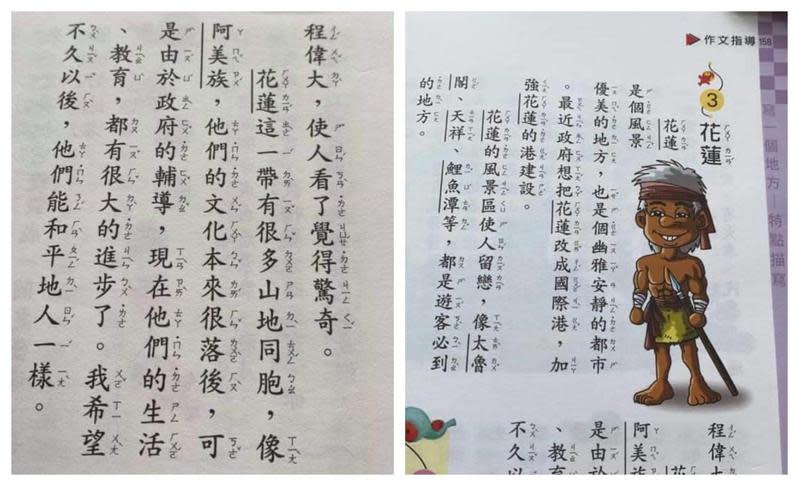 程偉大，使人看了覺得驚奇。
花蓮這一帶有很多山地同胞，像
阿美族，他們的文化本來很落後，可
是由於政府的輔導，現在他們的生活
、教育，都有很大的進步了。我希望
不久以後，他們能和平地人一樣。
作文指導 158
寫一個地方—特點描寫
3 花蓮
花蓮
是個風景
優美的地方，也是個幽雅安靜的都市
。最近政府想把花蓮改成國際港，加
強花蓮的港建設。
花蓮的風景區使人留戀，像太魯
閣、天祥、鯉魚潭等，都是遊客必到
的地方。
程偉大
花
阿美族
是由於
、教育
不久以